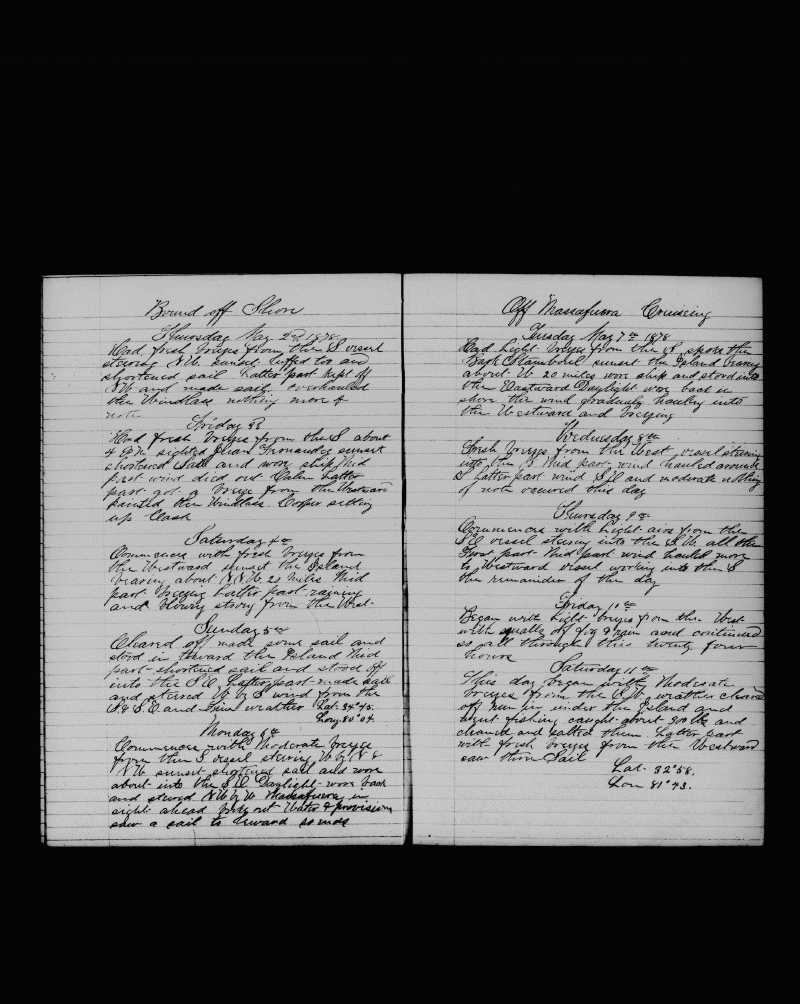 Bound off Shore
Thursday May 2nd 1878
Had fresh breezes from the S vessel
steering N.W. sunset luffed too and
shortened sail Latter part kept off
N.W and made sail. overhauled
the Windlass nothing more of
note
Friday 3d
Had fresh breezes from the S about
4 P.M. sighted Juan Fernandez sunset
shortened Sail and wore ship Mid
part wind died out Calm Latter
part got a breeze from the Westward
painted the Windlass. Cooper setting
up Cask
Saturday 4th
Commences with fresh breezes from
the Westward sunset the Island
bearing about N.N.W. 20 miles Mid
part breezing Latter part raining
and blowing strong from the West-
Sunday 5th
Cleared off made some sail and
stood in toward the Island Mid
part shortened sail and stood off
into the S.E. Latter part made sail
and steered W by S wind from the
S.S.E. and fine weather Lat. 34°45.
Long. 80°04.
Monday 6th
Commences with Moderate breezes
from the S vessel steering W by N &
N.W. sunset shortened sail and wore
about into the S.E. Daylight wore back
and steered N.W by W Massafuera in
sight ahead broke out Water & provisions
saw a sail to leward
Off Massafuera Cruiseing
Tuesday May 7th 1878
Had Light breezes from the S. spoke the
Bark Stamboul sunset the Island bearing
about W 20 miles wore ship and stood into
the Eastward Daylight wore back in
shore the wind gradualy hauling into
the Westward and breezing
Wednesday 8th
Fresh breezes from the West, vessel steering
into the S Mid part wind hauled around
S Latter part wind S.E and moderate nothing
of note occured this day
Thursday 9th
Commences with Light airs from the
S.E vessel steering into the S.W. all the
First part Mid part wind hauled more
to Westward vessel working into the S
the remainder of the day
Friday 10th
Began with Light breezes from the West
with squalls of fog & rain and continued
so all through this twenty four
hours
Saturday 11th
This day began with Moderate
breezes from the weather cleared
off run in under the Island and
went fishing caught about 900 lbs and
cleaned and salted them Latter part
with fresh breezes from the Westward
saw three Sail
Lat. 32°58.
Lon 81°43.